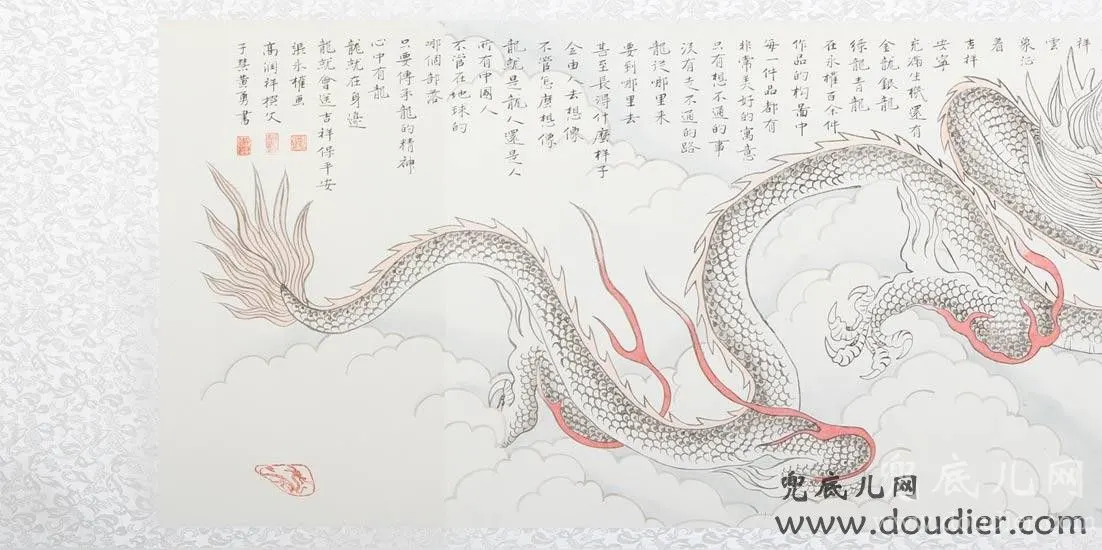 祥
雲
象
着
吉祥
安寧
充滿生機還有
金龍銀龍
綠龍青龍
在永權百余件
作品的构圖中
每一件品都有
非常美好的寓意
只有想不通的事
沒有走不通的路
龍從哪里来
要到哪里去
甚至長得什麼样子
全由人去想像
不管怎麽想像
龍就是龍人還是人
所有中國人
不管在地球的
哪個部落
只要傳承龍的精神
心中有龍
龍就在身邊
龍就會送吉祥保平安
張永權画
高润祥撰文
黃勇書
兜底儿网
兜底儿网
www.doudier.com